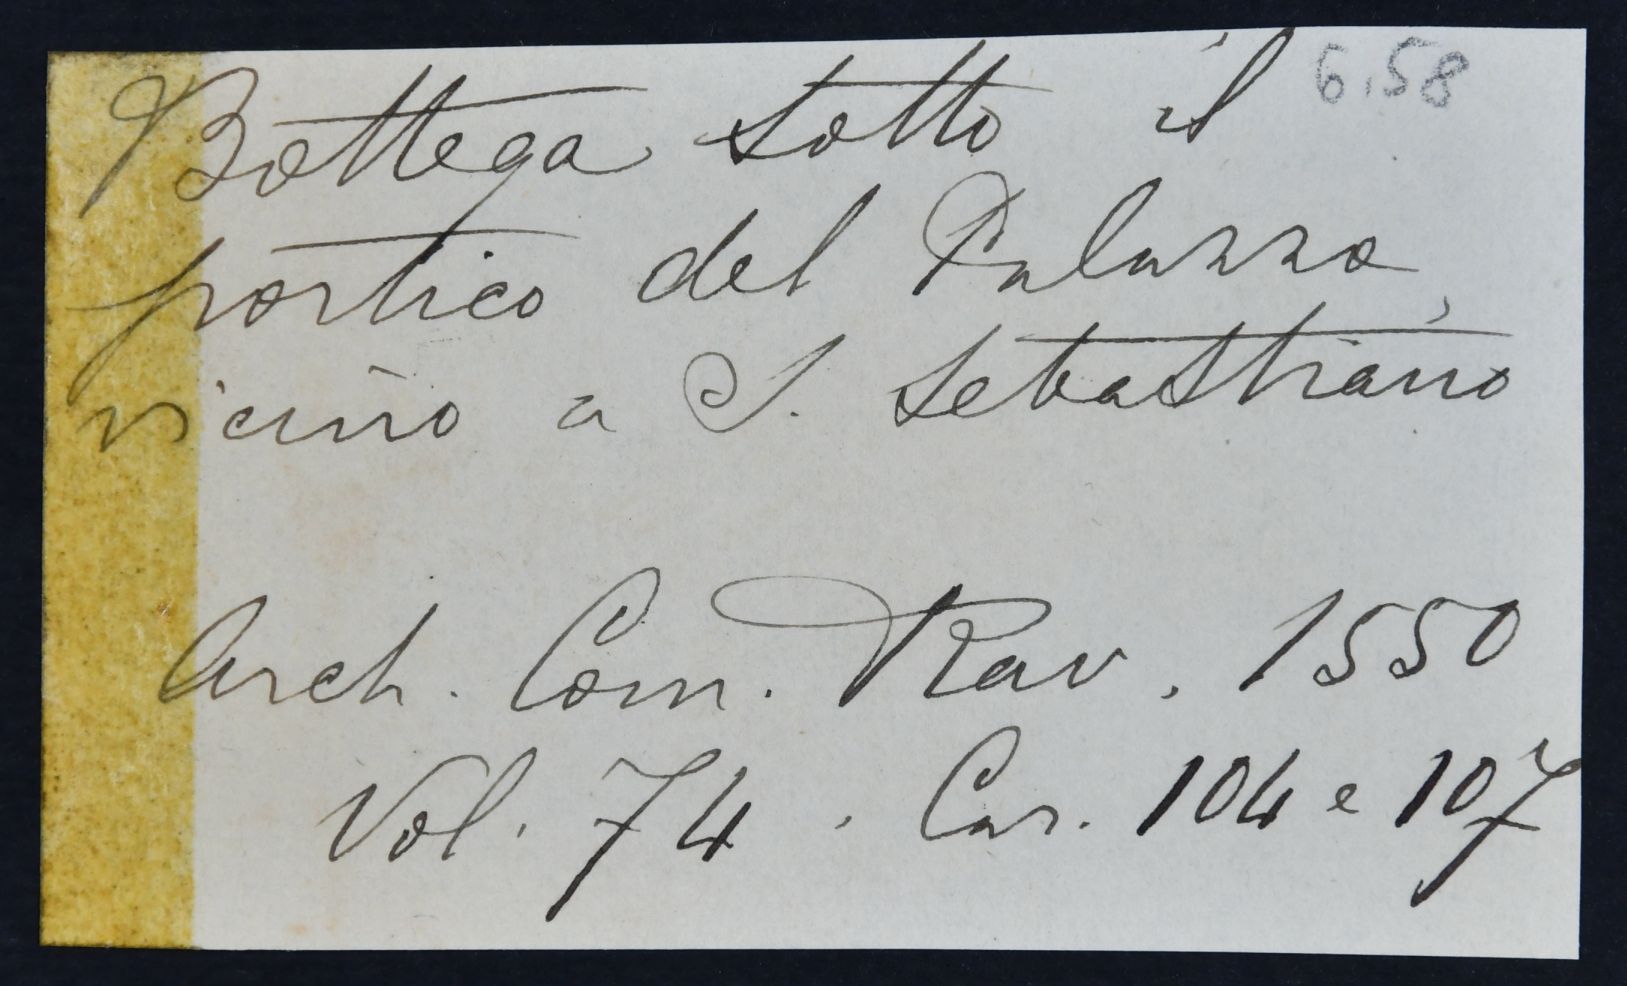 6.58
Bottega sotto il
portico del Palazzo,
vicino a S. Sebastiano
Arch. Com. Rav. 1550
Vol. 74. Car. 104 e 107